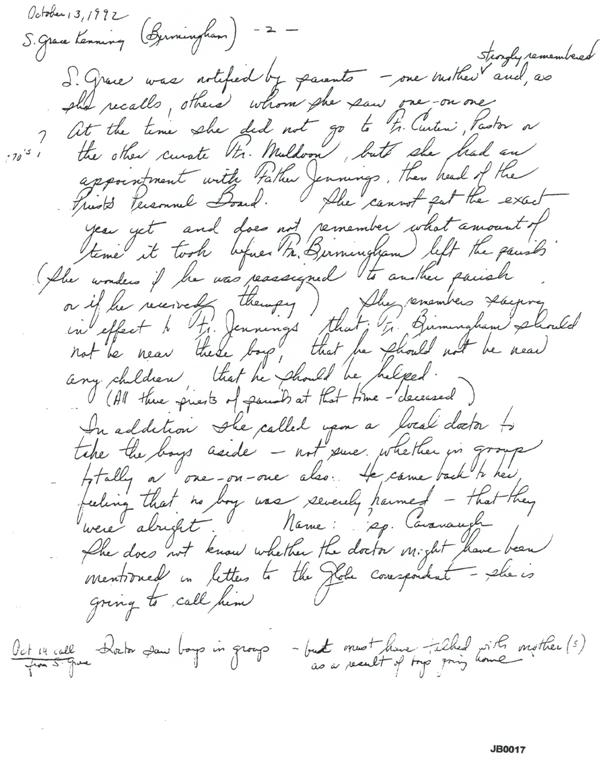 October 13, 1992
S. Grace Kenning (Birmingham) - 2 -
strongly remembered
S. Grace was notified by parents - one mother and, as
she recalls, others whom she saw one-on-one
At the time she did not go to Fr. Curtin, Pastor or
'70's ?
the other curate Fr. Muldoon, but she had an
appointment with Father Jennings, then head of the
Priests Personnel Board. She cannot put the exact
year yet and does not remember what amount of
time it took before Fr. Birmingham left the parish
(She wonders if he was reassigned to another parish
or if he received therapy) She remembers saying
in effect to Fr. Jennings that Fr. Birmingham should
not be near these boys, that he should not be near
any children, that he should be helped.
(All three priests of parish at that time - deceased)
In addition she called upon a local doctor to
take the boys aside - not sure whether in group
totally or one-on-one also. He came back to her
feeling that no boy was severely harmed - that they
were alright. Name: sp. Cavanaugh
She does not know whether the doctor might have been
mentioned in letters to the Globe correspondent - she is
going to call him
Oct 14 call from S Grace
Doctor saw boys in group - but must have talked with mother(s)
as a result of boys going home
JB0017